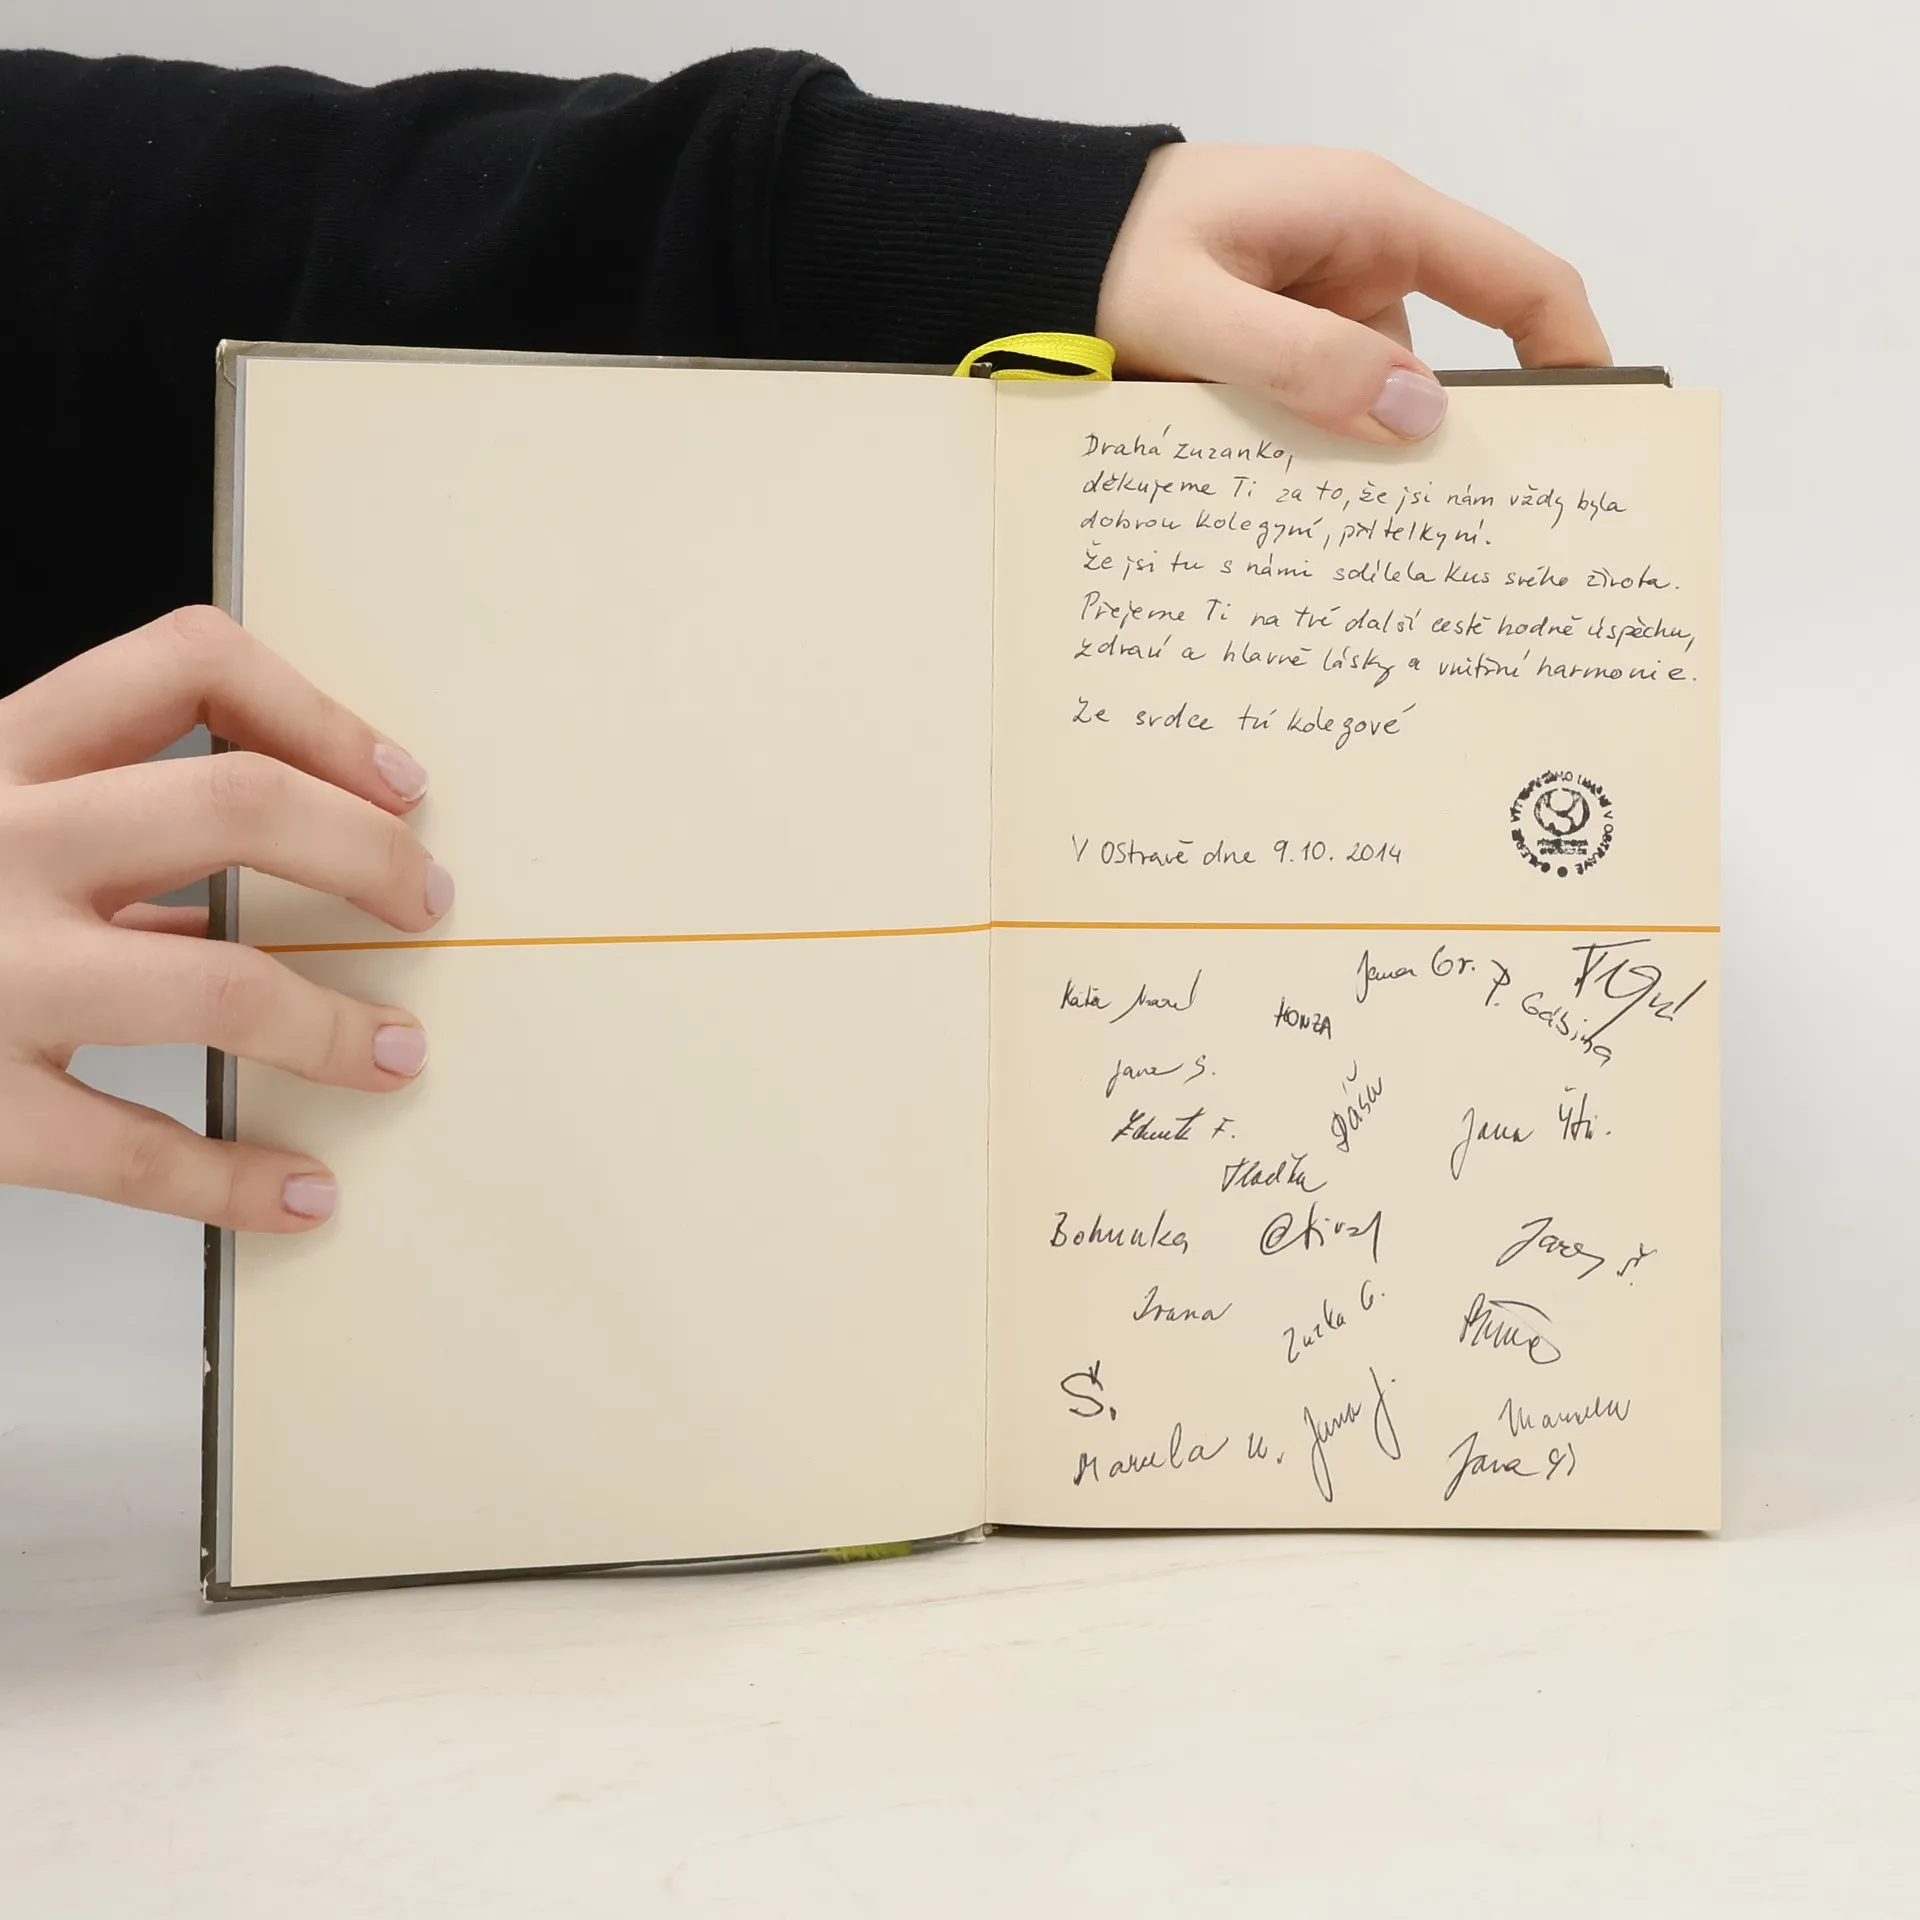 Drahá Zuzanko,
děkujeme Ti za to, že jsi nám vždy byla
dobrou kolegyní, přítelkyní.
Že jsi tu s námi sdílela kus svého života.
Přejeme Ti na tvé další cestě hodně úspěchu,
zdraví a hlavně lásky a vnitřní harmonie.
Ze srdce tví kolegové
GALERIE VÝTVARNÉHO UMĚNÍ V OSTRAVĚ
V Ostravě dne 9.10.2014
Jana Gr.
Káťa
HONZA
P. Gábina
Jana S.
Dáša
Zdeněk F.
Jana
Vlaďka
Bohunka
Ivana
Zuzka G.
Š.
Marcela
Jana J.
Jana